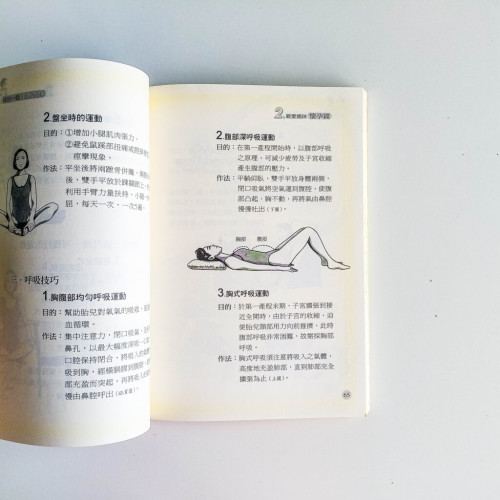 2.盤坐時的運動
目的：①增加小腿肌肉張力。
②避免鼠蹊部扭痛或
痙攣現象。
作法：平坐後將兩腳曾併攏，
，雙手平放於
利用手臂力量扶持，小
屈，每天一次，一次5遍。
三、呼吸技巧
1.胸腹部均勻呼吸運動
目的：幫助胎兒對氧氣的吸收，
血循環。
作法：集中注意力，閉口吸氣，
鼻孔，以最大幅度深吸一
口腔保持閉合，將吸入的氣
吸到胸，經橫膈膜到腹部，
部充盈而突起，再將吸入
慢由鼻腔呼出
2.親愛媽咪 懷孕篇
2.腹部深呼吸運動
目的：在第一產程開始時，以腹部呼吸
之原理，可減少疲勞及子宮收縮
產生腹部的壓力。
作法：平躺仰臥，雙手平放身體兩側，
閉口吸氣將空氣運到腹腔，使腹
部凸起，胸不動，再將氣由鼻腔
慢慢吐出(下圖)。
胸部 腹部
3.胸式呼吸運動
目的：於第一產程末期，子宮頸張到接
近全開時，由於子宮的收縮，迫
使胎兒頭部用力向前推擠，此時
腹部呼吸非常困難，故需採胸部
呼吸。
作法：胸式呼吸須注意將吸入之氣體，
高度地充盈肺部，直到肺部完全
擴張為止(上圖)。
65